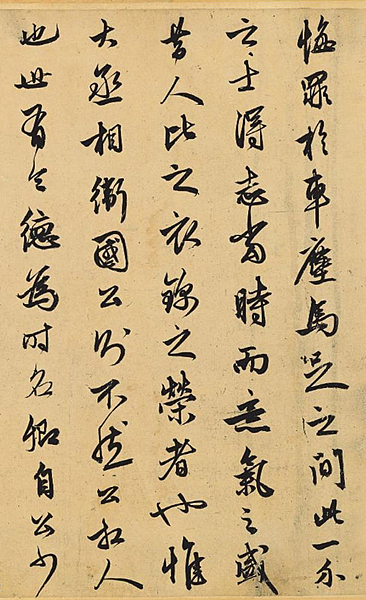 悔罪於車塵馬足之間此一介
之士得志當時而意氣之盛
昔人比之衣錦之榮者也惟
大丞相衛國公則不然公相人
也世有令德為時名卿自公少